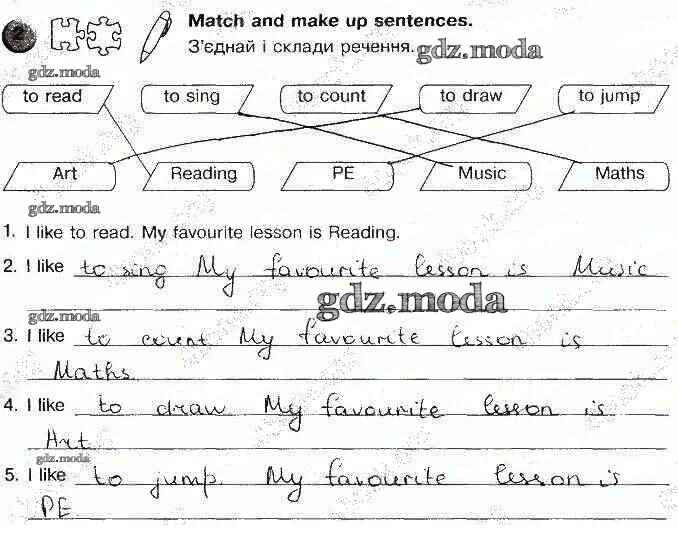 2 Match and make up sentences.
З'єднай і склади речення. gdz.moda
gdz.moda
to read to sing to count to draw to jump
Art Reading PE Music Maths
gdz.moda
1. I like to read. My favourite lesson is Reading.
2. I like to sing My favourite lesson is Music
gdz.moda
gdz.moda
3. I like to count My favourite lesson is
Maths
4. I like to draw My favourite lesson is
Art
gdz.moda
5. I like to jump. My favourite lesson is
PE